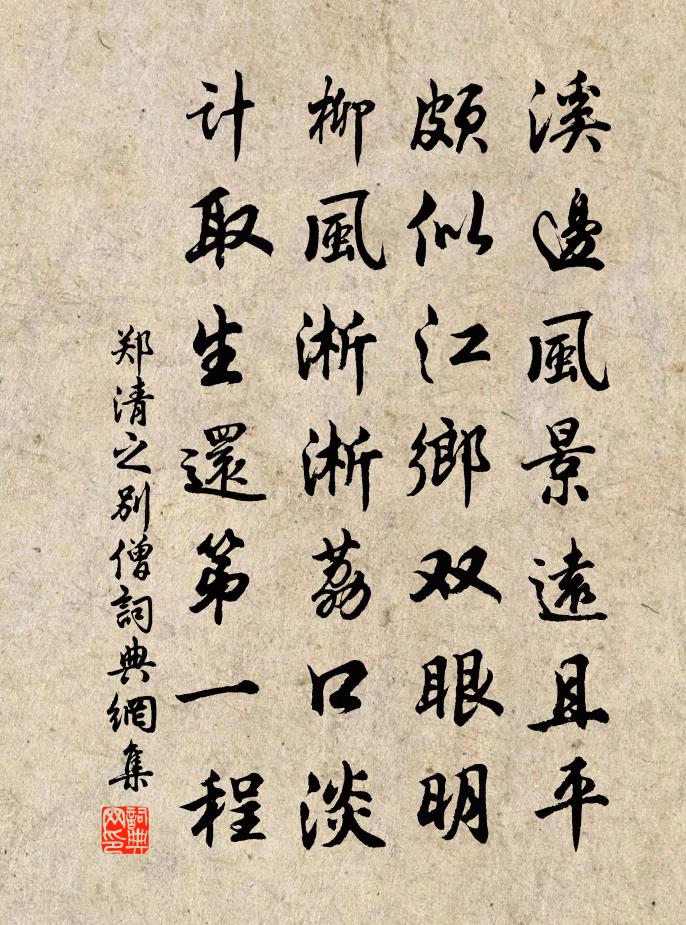 溪邊風景遠且平
頗似江鄉双眼明
柳風淅淅荔口淡
計取生還第一程
郑清之别僧詞典網集
詞典网印